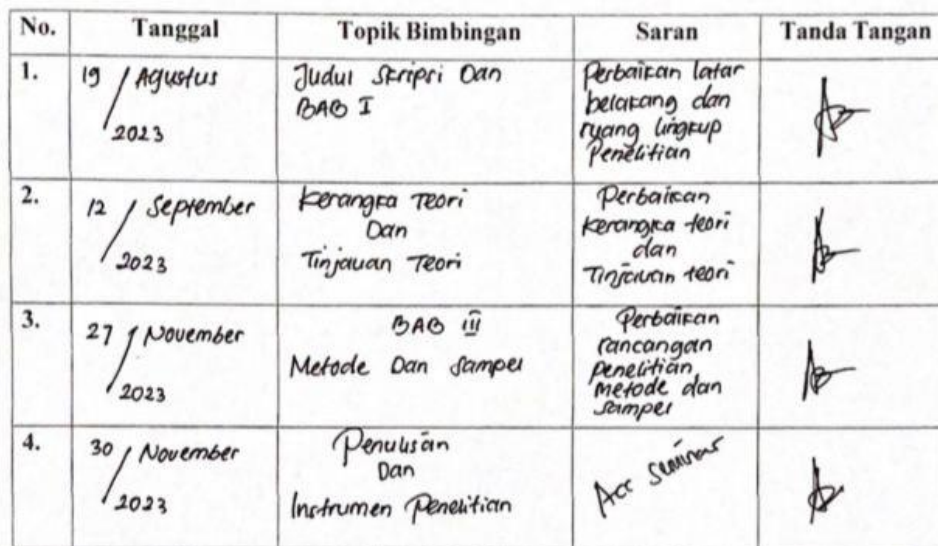 No. Tanggal Topik Bimbingan Saran Tanda Tangan
1. 19 / Agustus 2023
Judul Skripsi Dan
BAB I
Perbaikan latar
belakang dan
ruang lingkup
Penelitian
2. 12 / September 2023
Kerangka Teori
Dan
Tinjauan Teori
Perbaikan
Kerangka teori
dan
Tinjauan teori
3. 27 / November 2023
BAB III
Metode Dan Sampel
Perbaikan
rancangan
penelitian
metode dan
sampel
4. 30 / November 2023
Penulisan
Dan
Instrumen Penelitian
Acc Seminar